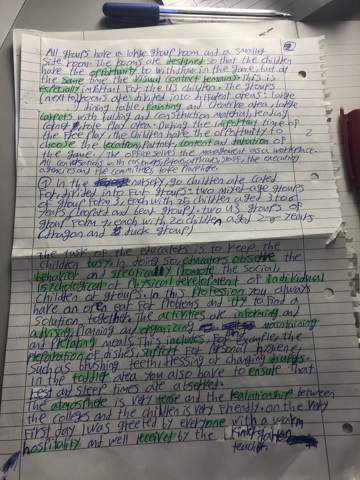 All groups have a large group room and a smaller
side room. The rooms are designed so that the children
have the opportunity to withdraw in the game, but at
the same time the visual contact remains. This is
especially important for the U3 children. The groups
(next) rooms are divided into different areas: large
dining table, Painting and Creative area, large
carpets with building and construction material, reading
corner, free Play area. During the important time of
the free Play, the children have the opportunity to
choose the location, Partner, content and duration of
the game. The office serves the management as a workplace.
All conversations with customers,
agencies and the committees take place here.
① In the nursery, 90 children are cared
For, divided into four groups: two mixed-age groups
of group form 1, each with 25 children aged 3 to 6
years (leopard and bear group), two U3 groups of
group form 1, each with 20 children aged 2-6 years
(dragon and duck group)
The task of the educators is to keep the
children busy in doing so educators observe the
behavior and Promote the Social,
Psychological or Physical development of individual
children or groups. In this Profession you always
have an open ear for Problems and try to find a
solution together. The activities are informing and
advising, planning and organizing maintaining
and Preparing meals. This includes, for example the
Preparation of dishes, support for Personal hygiene,
such as brushing teeth, dressing or changing diapers.
in the toddler area you also have to ensure that
rest and sleep times are observed.
The atmosphere is very and the relationship between
the colleges and the children is very friendly, on the very
First day I was greeted by everyone with a warm
hospitality and well received by the
teacher